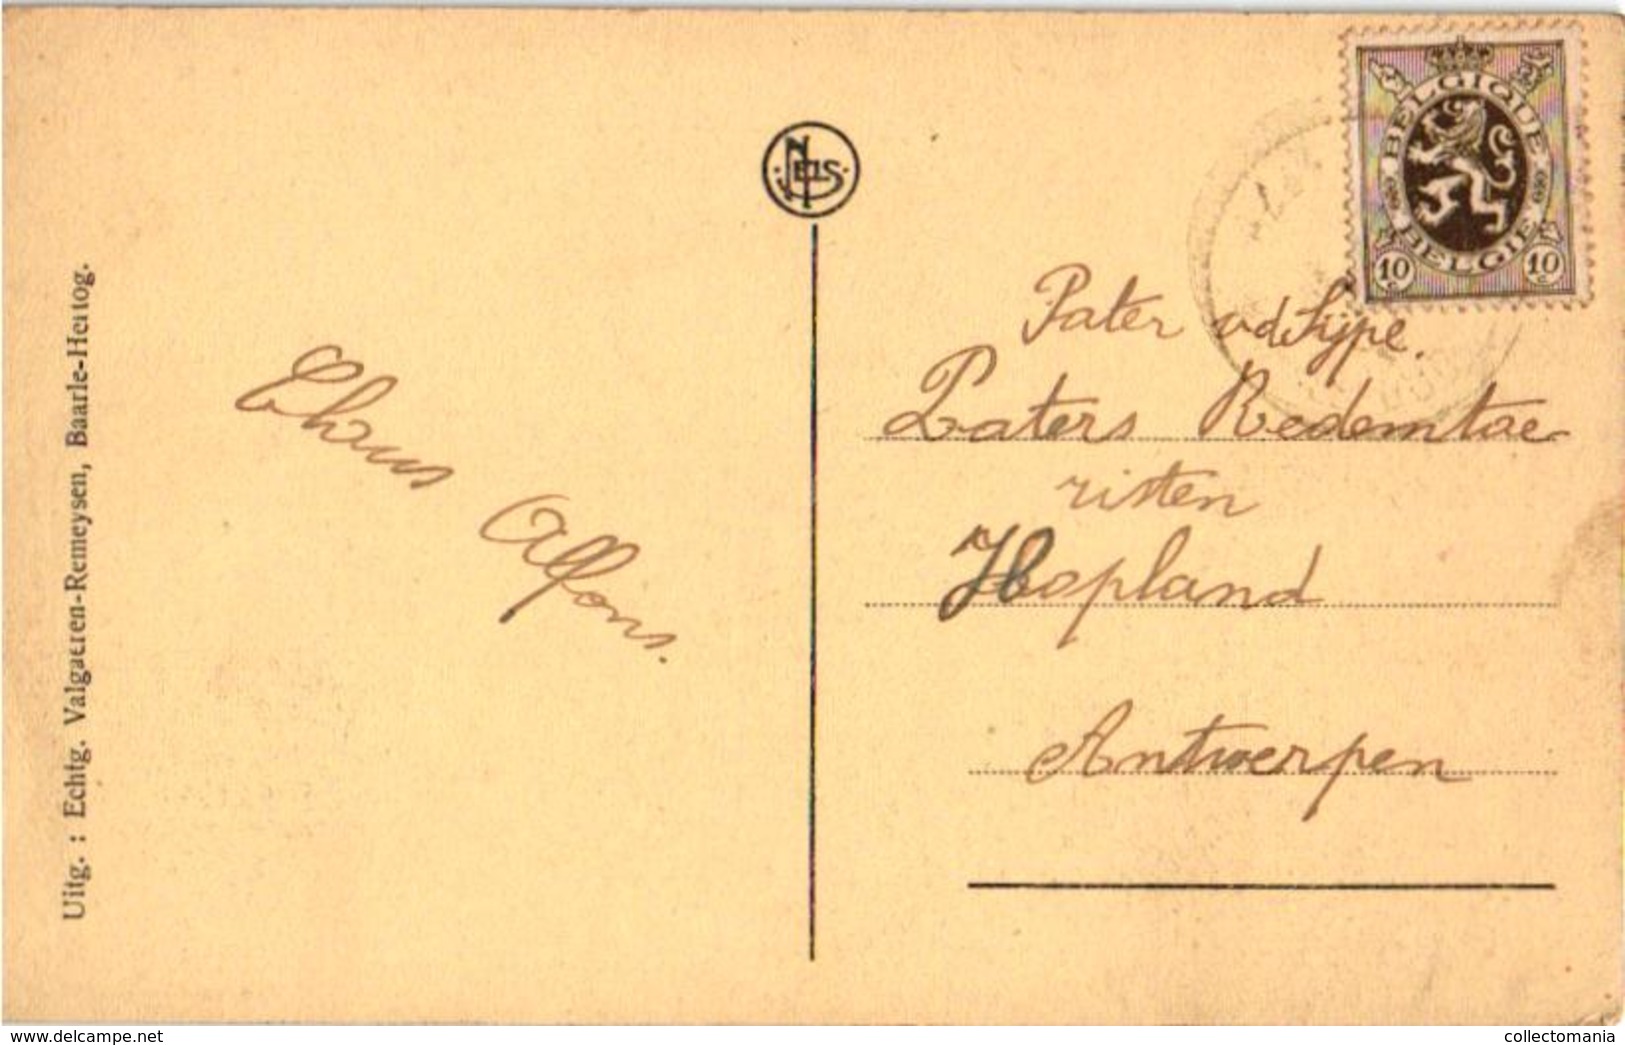 Uitg. : Echtg. Valgaeren-Remeysen, Baarle-Hertog.
NELS
BELGIQUE
BELGIE
10 c 10 c
Pater vd Lijpe.
Paters Redemtoe-
risten
Hopland
Antwerpen
Alfons.
www.delcampe.net
collectomania